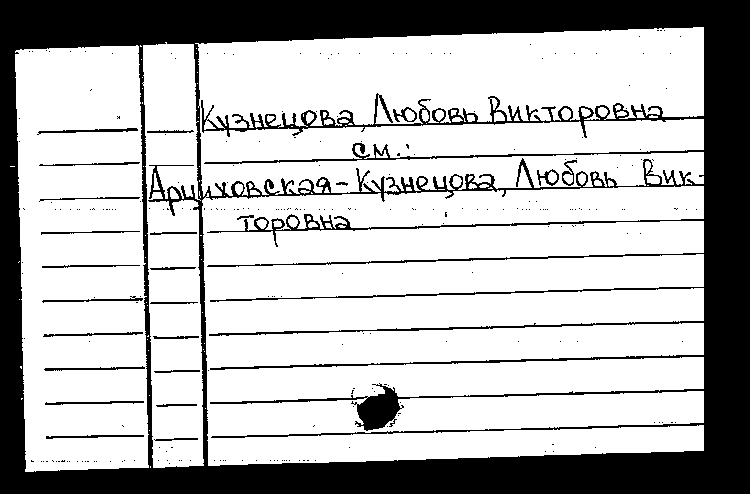 Кузнецова, Любовь Викторовна
см.:
Арциховская-Кузнецова, Любовь Вик-
торовна